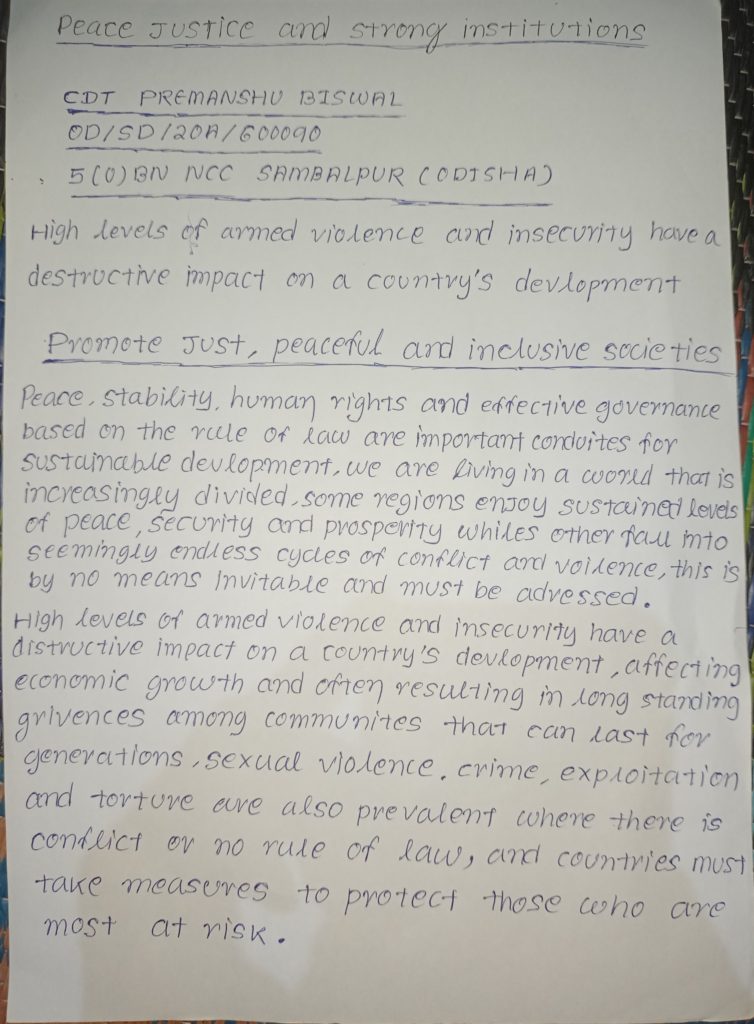 Peace Justice and strong institutions
CDT PREMANSHU BISWAL
OD/SD/20A/600090
5(O)BN NCC SAMBALPUR (ODISHA)
High levels of armed violence and insecurity have a
destructive impact on a country's devlopment
Promote Just, peaceful and inclusive societies
Peace, stability, human rights and effective governance
based on the rule of law are important conduites for
sustainable devlopment, we are living in a world that is
increasingly divided, some regions enjoy sustained levels
of peace, security and prosperity whiles other fall into
seemingly endless cycles of conflict and voilence, this is
by no means invitable and must be advessed.
High levels of armed violence and insecurity have a
distructive impact on a country's devlopment, affecting
economic growth and often resulting in long standing
grivences among communites that can last for
generations, sexual violence, crime, exploitation
and torture are also prevalent where there is
conflict or no rule of law, and countries must
take measures to protect those who are
most at risk.